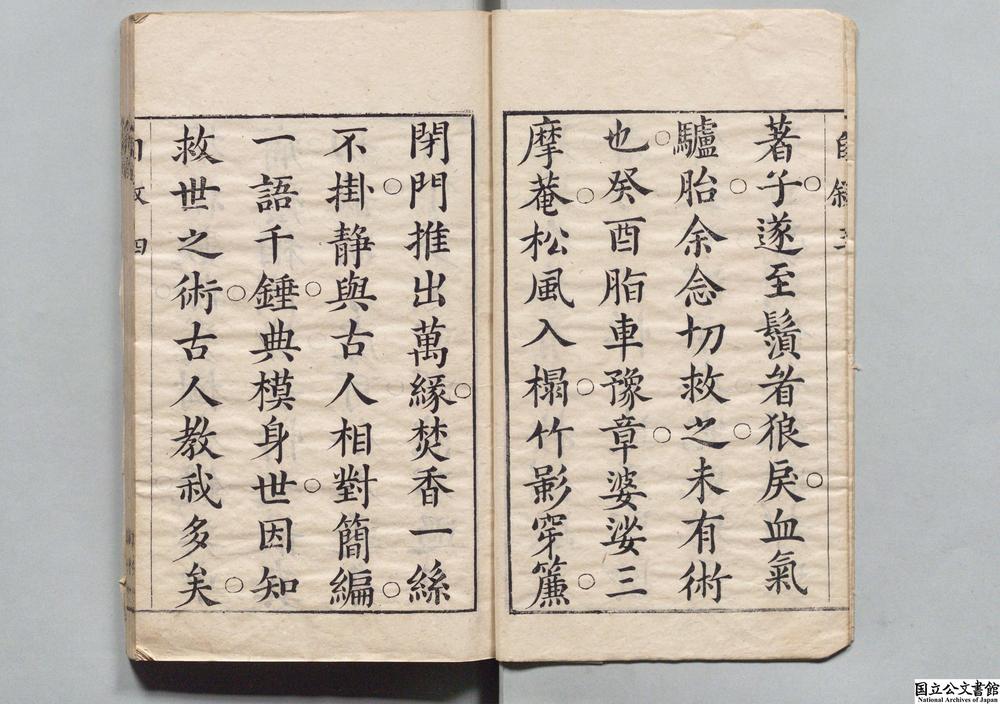 著子遂至鬚眷狼戾血氣
驢胎余念切救之未有術
也癸酉脂車豫章婆娑三
摩菴松風入榻竹影穿簾
閉門推出萬緣焚香一絲
不掛静與古人相對簡編
一語千錘典模身世因知
救世之術古人教我多矣
四
国立公文書館
National Archives of Japan